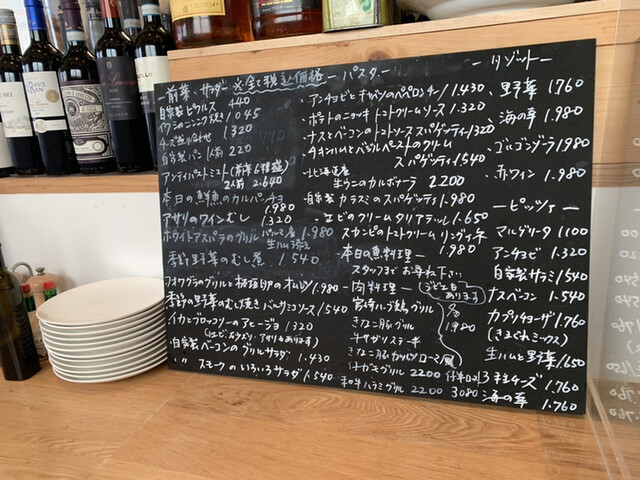 ー前菜、サラダー ※全て税込価格
自家製ピクルス 440
イワシのニンニク焼き 1045
チーズ盛り合せ 1320
自家製パン1人前 220
アンティパストミスト(前菜6種盛)
2人前 2.640
本日の鮮魚のカルパッチョ
1.980
アサリのワインむし 1320
ホワイトアスパラのグリル パルマ産 1.980
生ハム添え
季節野菜のむし煮 1.540
フォワグラのグリルと 1.980
季節の野菜のむし焼き バルサミコソース 1.540
イカとブロッコリーのアヒージョ 1320
・自家製ベーコンのグリルサラダ 1.430
〃 スモークのいろいろサラダ 1.540
ーパスター
・アンチョビとキャベツのペペロンチーノ 1.430
・ポテトのニョッキ トマトクリームソース 1.320
・ナスとベーコンのトマトソース スパゲッティ 1320
・チキンハムとバジルペーストのクリーム
スパゲッティ 1.540
・北海道産
生ウニのカルボナーラ 2200
・自家製 カラスミのスパゲッティ 1.980
・エビのクリームタリアテッレ 1.650
・スカンピのトマトクリーム リングイネ
1.980
本日の魚料理ー
スタッフまでお尋ね下さい
ー肉料理ー
宮崎ハーブ鶏グリル
きなこ豚グリル
牛サガリステーキ
きなこ豚カツレツ ローマ風
1980
グリル 2200
和牛ハラミグリル 2200 3080
ーリゾットー
・野菜 1.760
・海の幸 1.980
・ゴルゴンゾラ 1.980
・赤ワイン 1.980
ーピッツァー
・マルゲリータ 1100
・アンチョビ 1.320
・自家製サラミ 1.540
・ナスベーコン 1.540
・カプリチョーザ 1.760
(きまぐれミックス)
生ハムと野菜 1.650
3種チーズ 1.760
海の幸 1.760